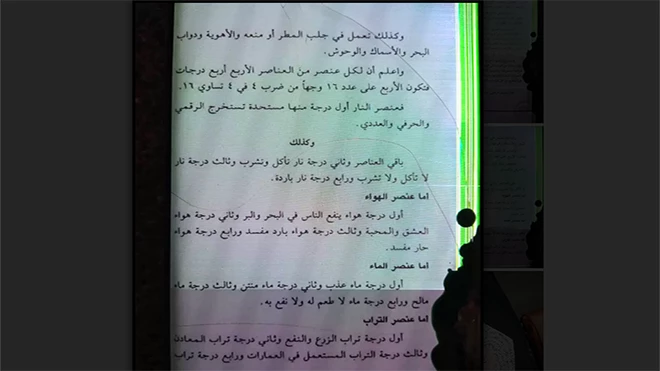 وكذلك تعمل في جلب المطر أو منعه والأهوية ودواب
البحر والأسماك والوحوش.
واعلم أن لكل عنصر من العناصر الأربع أربع درجات
فتكون الأربع على عدد ١٦ وجهاً من ضرب ٤ في ٤ تساوي ١٦.
فعنصر النار أول درجة منها مستحدة تستخرج الرقمي
والحرفي والعددي.
وكذلك
باقي العناصر وثاني درجة نار تأكل وتشرب وثالث درجة نار
لا تأكل ولا تشرب ورابع درجة نار باردة.
اما عنصر الهواء
أول درجة هواء ينفع الناس في البحر والبر وثاني درجة هواء
العشق والمحبة وثالث درجة هواء بارد مفسد ورابع درجة هواء
حار مفسد.
اما عنصر الماء
أول درجة ماء عذب وثاني درجة ماء منتن وثالث درجة ماء
مالح ورابع درجة ماء لا طعم له ولا نفع به.
اما عنصر التراب
أول درجة تراب الزرع والنفع وثاني درجة تراب المعادن
وثالث درجة التراب المستعمل في العمارات ورابع درجة تراب